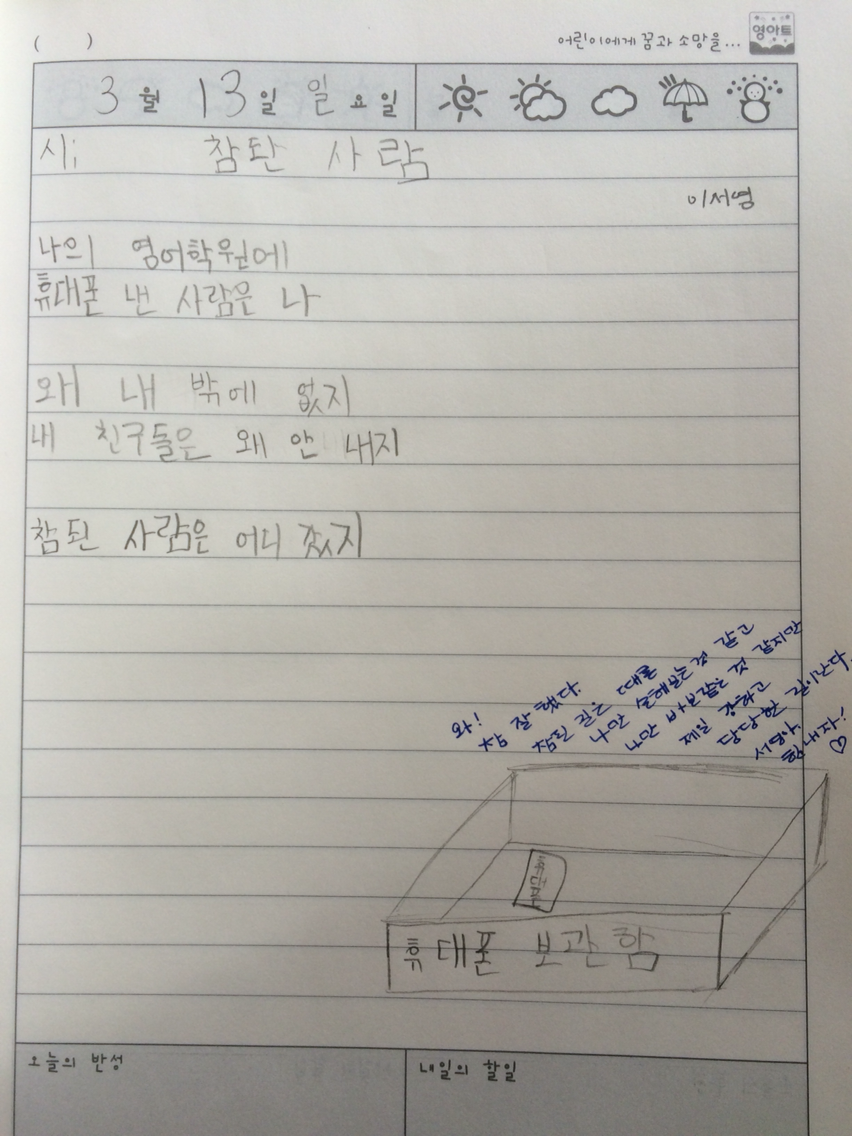 ( )
어린이에게 꿈과 소망을...
영아트
3 월 13 일 일 요일
시; 참된 사람
이서영
나의 영어학원에
휴대폰 낸 사람은 나
왜 내 밖에 없지
내 친구들은 왜 안 내지
참된 사람은 어디 갔지
와!
참 잘 했다.
참된 길은 때론
나만 손해보는 것 같고
나만 바보같은 것 같지만
제일 강하고
당당한 길이란다.
서영아.
힘내자! ♡
휴대폰
휴대폰 보관함
오늘의 반성
내일의 할일